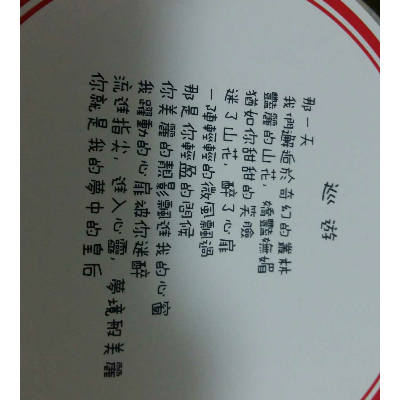 巡游
那一天
我們邂逅於奇幻的叢林
豔麗的山花，嬌豔嫵媚
猶如你甜甜的笑臉
迷了山花，醉了心扉
一陣輕輕的微風飄過
那是你輕盈的問候
你美麗的靚影飄進我的心窗
我躍動的心扉被你迷醉
流進指尖，進入心靈，夢境般美麗
你就是我的夢中的皇后